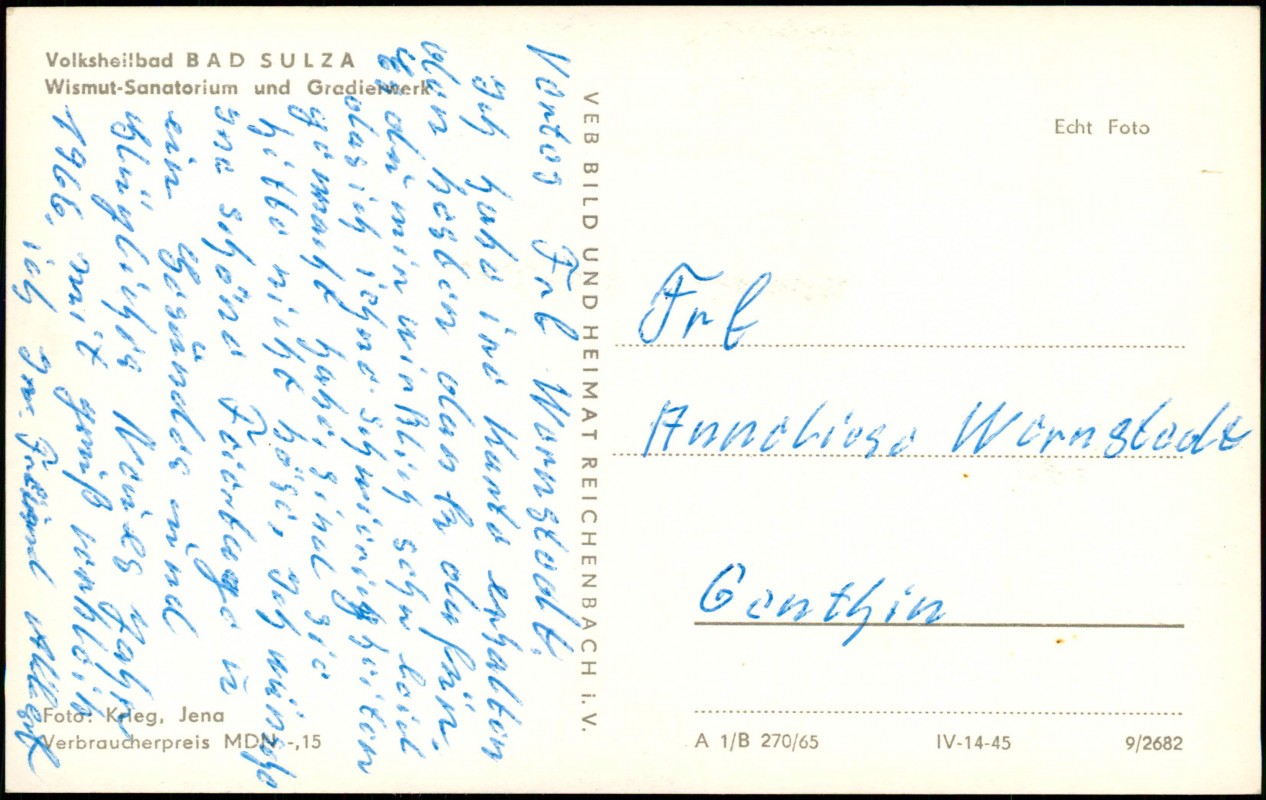 Volksheilbad BAD SULZA
Wismut-Sanatorium und Gradierwerk
Wertes Frl Wernstedt.
Ich habe ire Karte erhalten
den besten dank dafür.
Es du mir wirklich sehr leid
das ich ihne schwirichkeiten
gemacht habe, sind sie
bitte nicht böse, Ich wünsche
ine schöne Feiertage u
ein Gesundes und
Glügliches Neues Jahr
1966, mit gruß verbleib
ich Freund
Foto: Krieg, Jena
Verbraucherpreis MDN -,15
VEB BILD UND HEIMAT REICHENBACH i. V.
Echt Foto
Frl
Anneliese Wernstedt
Genthin
A 1/B 270/65 IV-14-45 9/2682